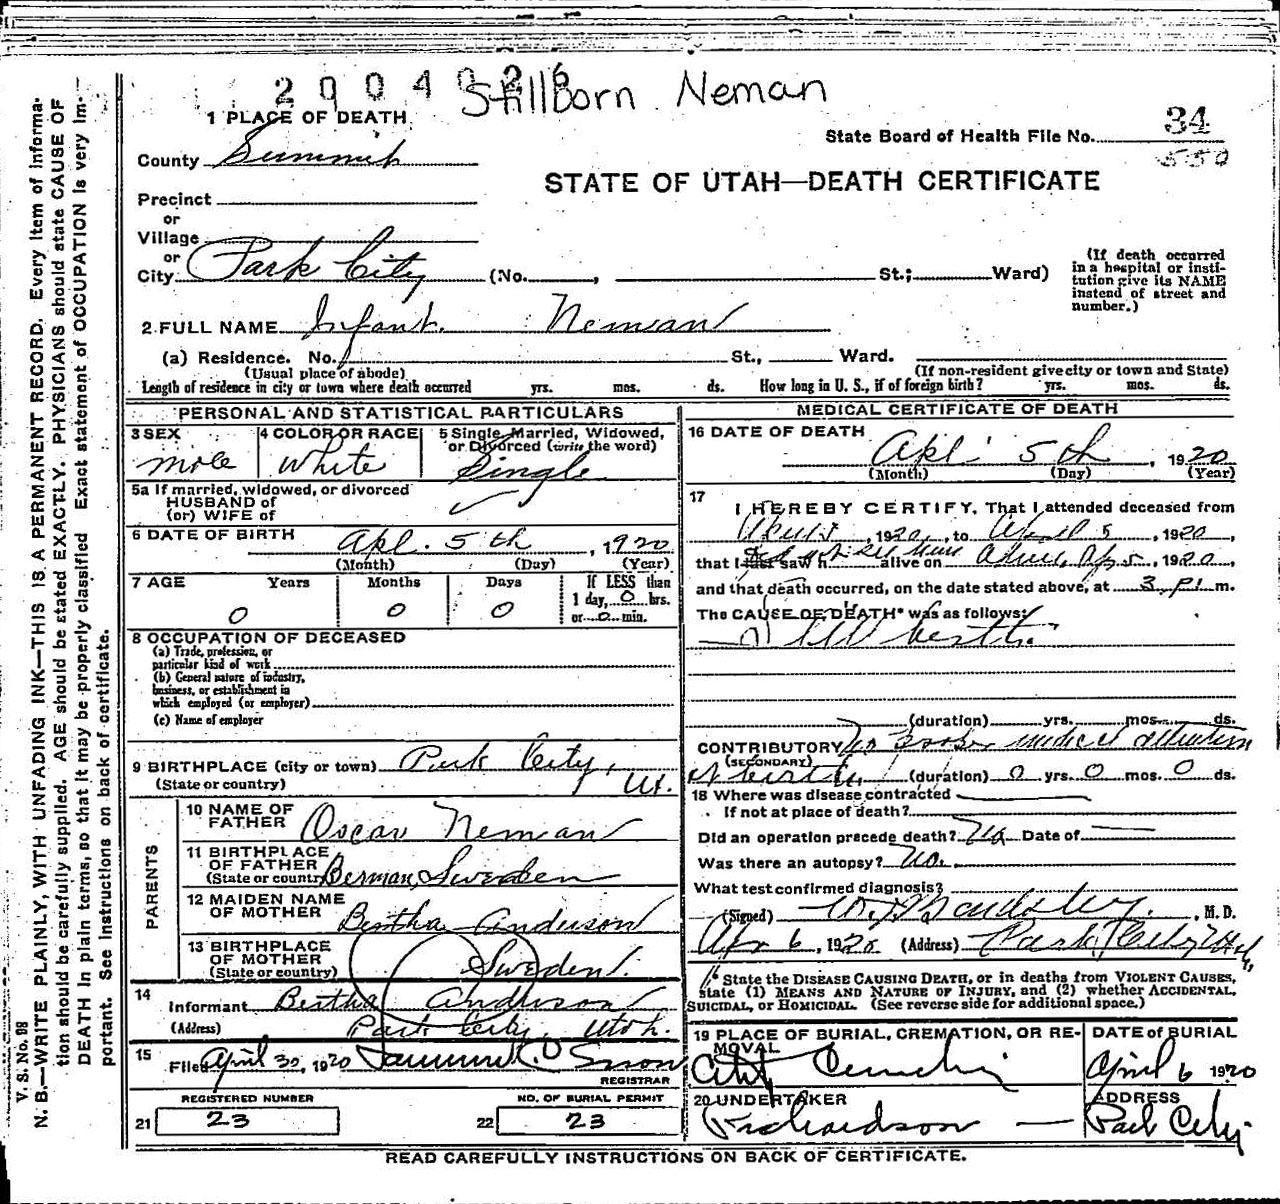 2004026
Stillborn Neman
1 PLACE OF DEATH
State Board of Health File No. 34
550
County Summit
STATE OF UTAH—DEATH CERTIFICATE
Precinct
or
Village
or
City Park City (No. , St.; Ward)
(If death occurred in a hospital or institution give its NAME instead of street and number.)
2 FULL NAME Infant Neman
(a) Residence. No. St., Ward.
(Usual place of abode) (If non-resident give city or town and State)
Length of residence in city or town where death occurred yrs. mos. ds. How long in U. S., if of foreign birth? yrs. mos. ds.
PERSONAL AND STATISTICAL PARTICULARS
3 SEX
male
4 COLOR OR RACE
White
5 Single, Married, Widowed, or Divorced (write the word)
Single
5a If married, widowed, or divorced
HUSBAND of
(or) WIFE of
6 DATE OF BIRTH Apl. 5th, 1920
(Month) (Day) (Year)
7 AGE Years Months Days If LESS than
1 day, 0 hrs.
0 0 0 or 0 min.
8 OCCUPATION OF DECEASED
(a) Trade, profession, or
particular kind of work
(b) General nature of industry,
business, or establishment in
which employed (or employer)
(c) Name of employer
9 BIRTHPLACE (city or town) Park City,
(State or country) Ut.
PARENTS
10 NAME OF FATHER Oscar Neman
11 BIRTHPLACE OF FATHER
(State or country) Berman, Sweden
12 MAIDEN NAME OF MOTHER Bertha Anderson
13 BIRTHPLACE OF MOTHER
(State or country) Sweden.
14 Informant Bertha Anderson
(Address) Park City, Utah.
15 Filed April 30, 1920
REGISTRAR
REGISTERED NUMBER
21 23
NO. OF BURIAL PERMIT
22 23
MEDICAL CERTIFICATE OF DEATH
16 DATE OF DEATH
Apl 5th, 1920
(Month) (Day) (Year)
17 I HEREBY CERTIFY, That I attended deceased from
April 5, 1920, to April 5, 1920
that I last saw h alive on Apr 5, 1920,
and that death occurred, on the date stated above, at 3 P. m.
The CAUSE OF DEATH* was as follows:
Still birth.
(duration) yrs. mos. ds.
CONTRIBUTORY No proper medical attention
(SECONDARY)
at birth (duration) 0 yrs. 0 mos. 0 ds.
18 Where was disease contracted
If not at place of death?
Did an operation precede death? No Date of
Was there an autopsy? No.
What test confirmed diagnosis?
(Signed) , M. D.
Apr 6, 1920 (Address) Park City Utah,
* State the DISEASE CAUSING DEATH, or in deaths from VIOLENT CAUSES,
state (1) MEANS AND NATURE OF INJURY, and (2) whether ACCIDENTAL,
SUICIDAL, OR HOMICIDAL. (See reverse side for additional space.)
19 PLACE OF BURIAL, CREMATION, OR REMOVAL
City Cemetery
DATE of BURIAL
April 6 1920
20 UNDERTAKER
Richardson
ADDRESS
Park City
READ CAREFULLY INSTRUCTIONS ON BACK OF CERTIFICATE.
V. S. No. 98
N. B.—WRITE PLAINLY, WITH UNFADING INK—THIS IS A PERMANENT RECORD. Every item of informa-
tion should be carefully supplied. AGE should be stated EXACTLY. PHYSICIANS should state CAUSE OF
DEATH in plain terms, so that it may be properly classified. Exact statement of OCCUPATION is very im-
portant. See instructions on back of certificate.